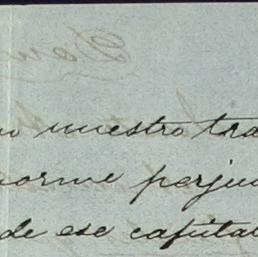 nuestro tra
norme perjui
de ese capital